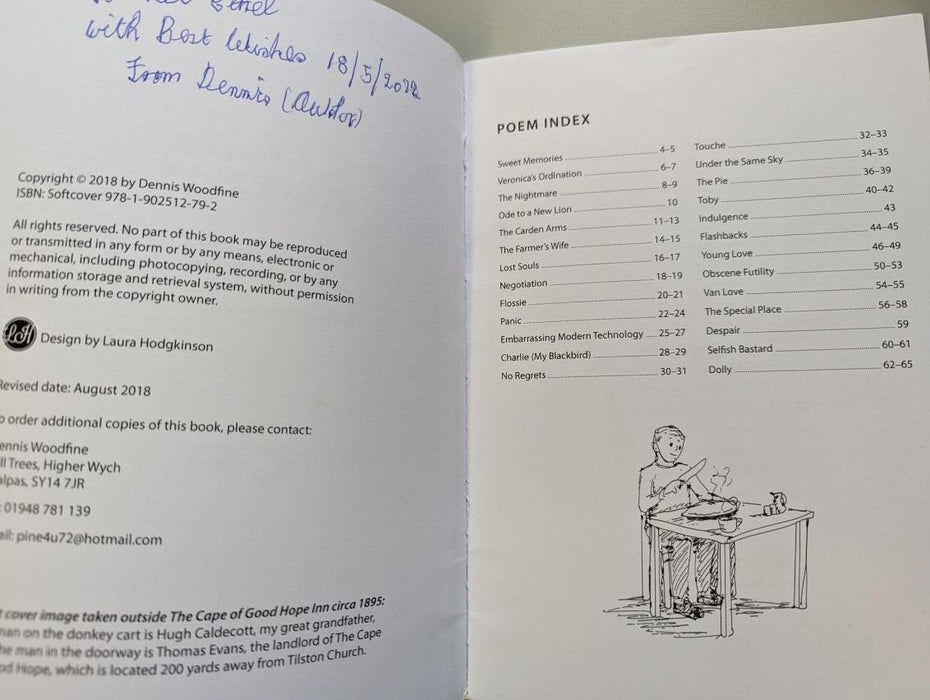 with Best Wishes 18/5/2022
From Dennis (Author)
Copyright © 2018 by Dennis Woodfine
ISBN: Softcover 978-1-902512-79-2
All rights reserved. No part of this book may be reproduced
or transmitted in any form or by any means, electronic or
mechanical, including photocopying, recording, or by any
information storage and retrieval system, without permission
in writing from the copyright owner.
LH Design by Laura Hodgkinson
Revised date: August 2018
o order additional copies of this book, please contact:
ennis Woodfine
ll Trees, Higher Wych
alpas, SY14 7JR
: 01948 781 139
ail: pine4u72@hotmail.com
t cover image taken outside The Cape of Good Hope Inn circa 1895:
man on the donkey cart is Hugh Caldecott, my great grandfather,
he man in the doorway is Thomas Evans, the landlord of The Cape
od Hope, which is located 200 yards away from Tilston Church.
POEM INDEX
Sweet Memories 4–5
Veronica's Ordination 6–7
The Nightmare 8–9
Ode to a New Lion 10
The Carden Arms 11–13
The Farmer's Wife 14–15
Lost Souls 16–17
Negotiation 18–19
Flossie 20–21
Panic 22–24
Embarrassing Modern Technology 25–27
Charlie (My Blackbird) 28–29
No Regrets 30–31
Touche 32–33
Under the Same Sky 34–35
The Pie 36–39
Toby 40–42
Indulgence 43
Flashbacks 44–45
Young Love 46–49
Obscene Futility 50–53
Van Love 54–55
The Special Place 56–58
Despair 59
Selfish Bastard 60–61
Dolly 62–65